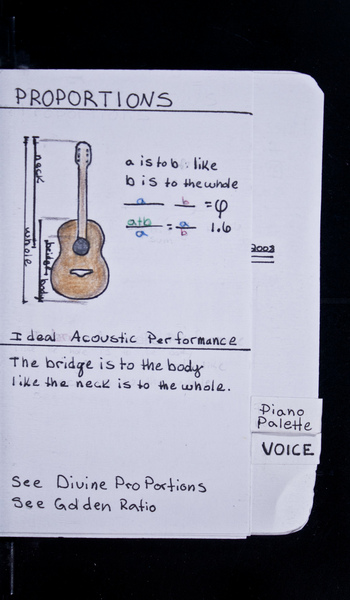 PROPORTIONS
neck
whole
bridge
body
a is to b like
b is to the whole
a b = φ
a+b = a 1.6
a b
2003
Ideal Acoustic Performance
The bridge is to the body
like the neck is to the whole.
Piano
Palette
VOICE
See Divine ProPortions
See Golden Ratio